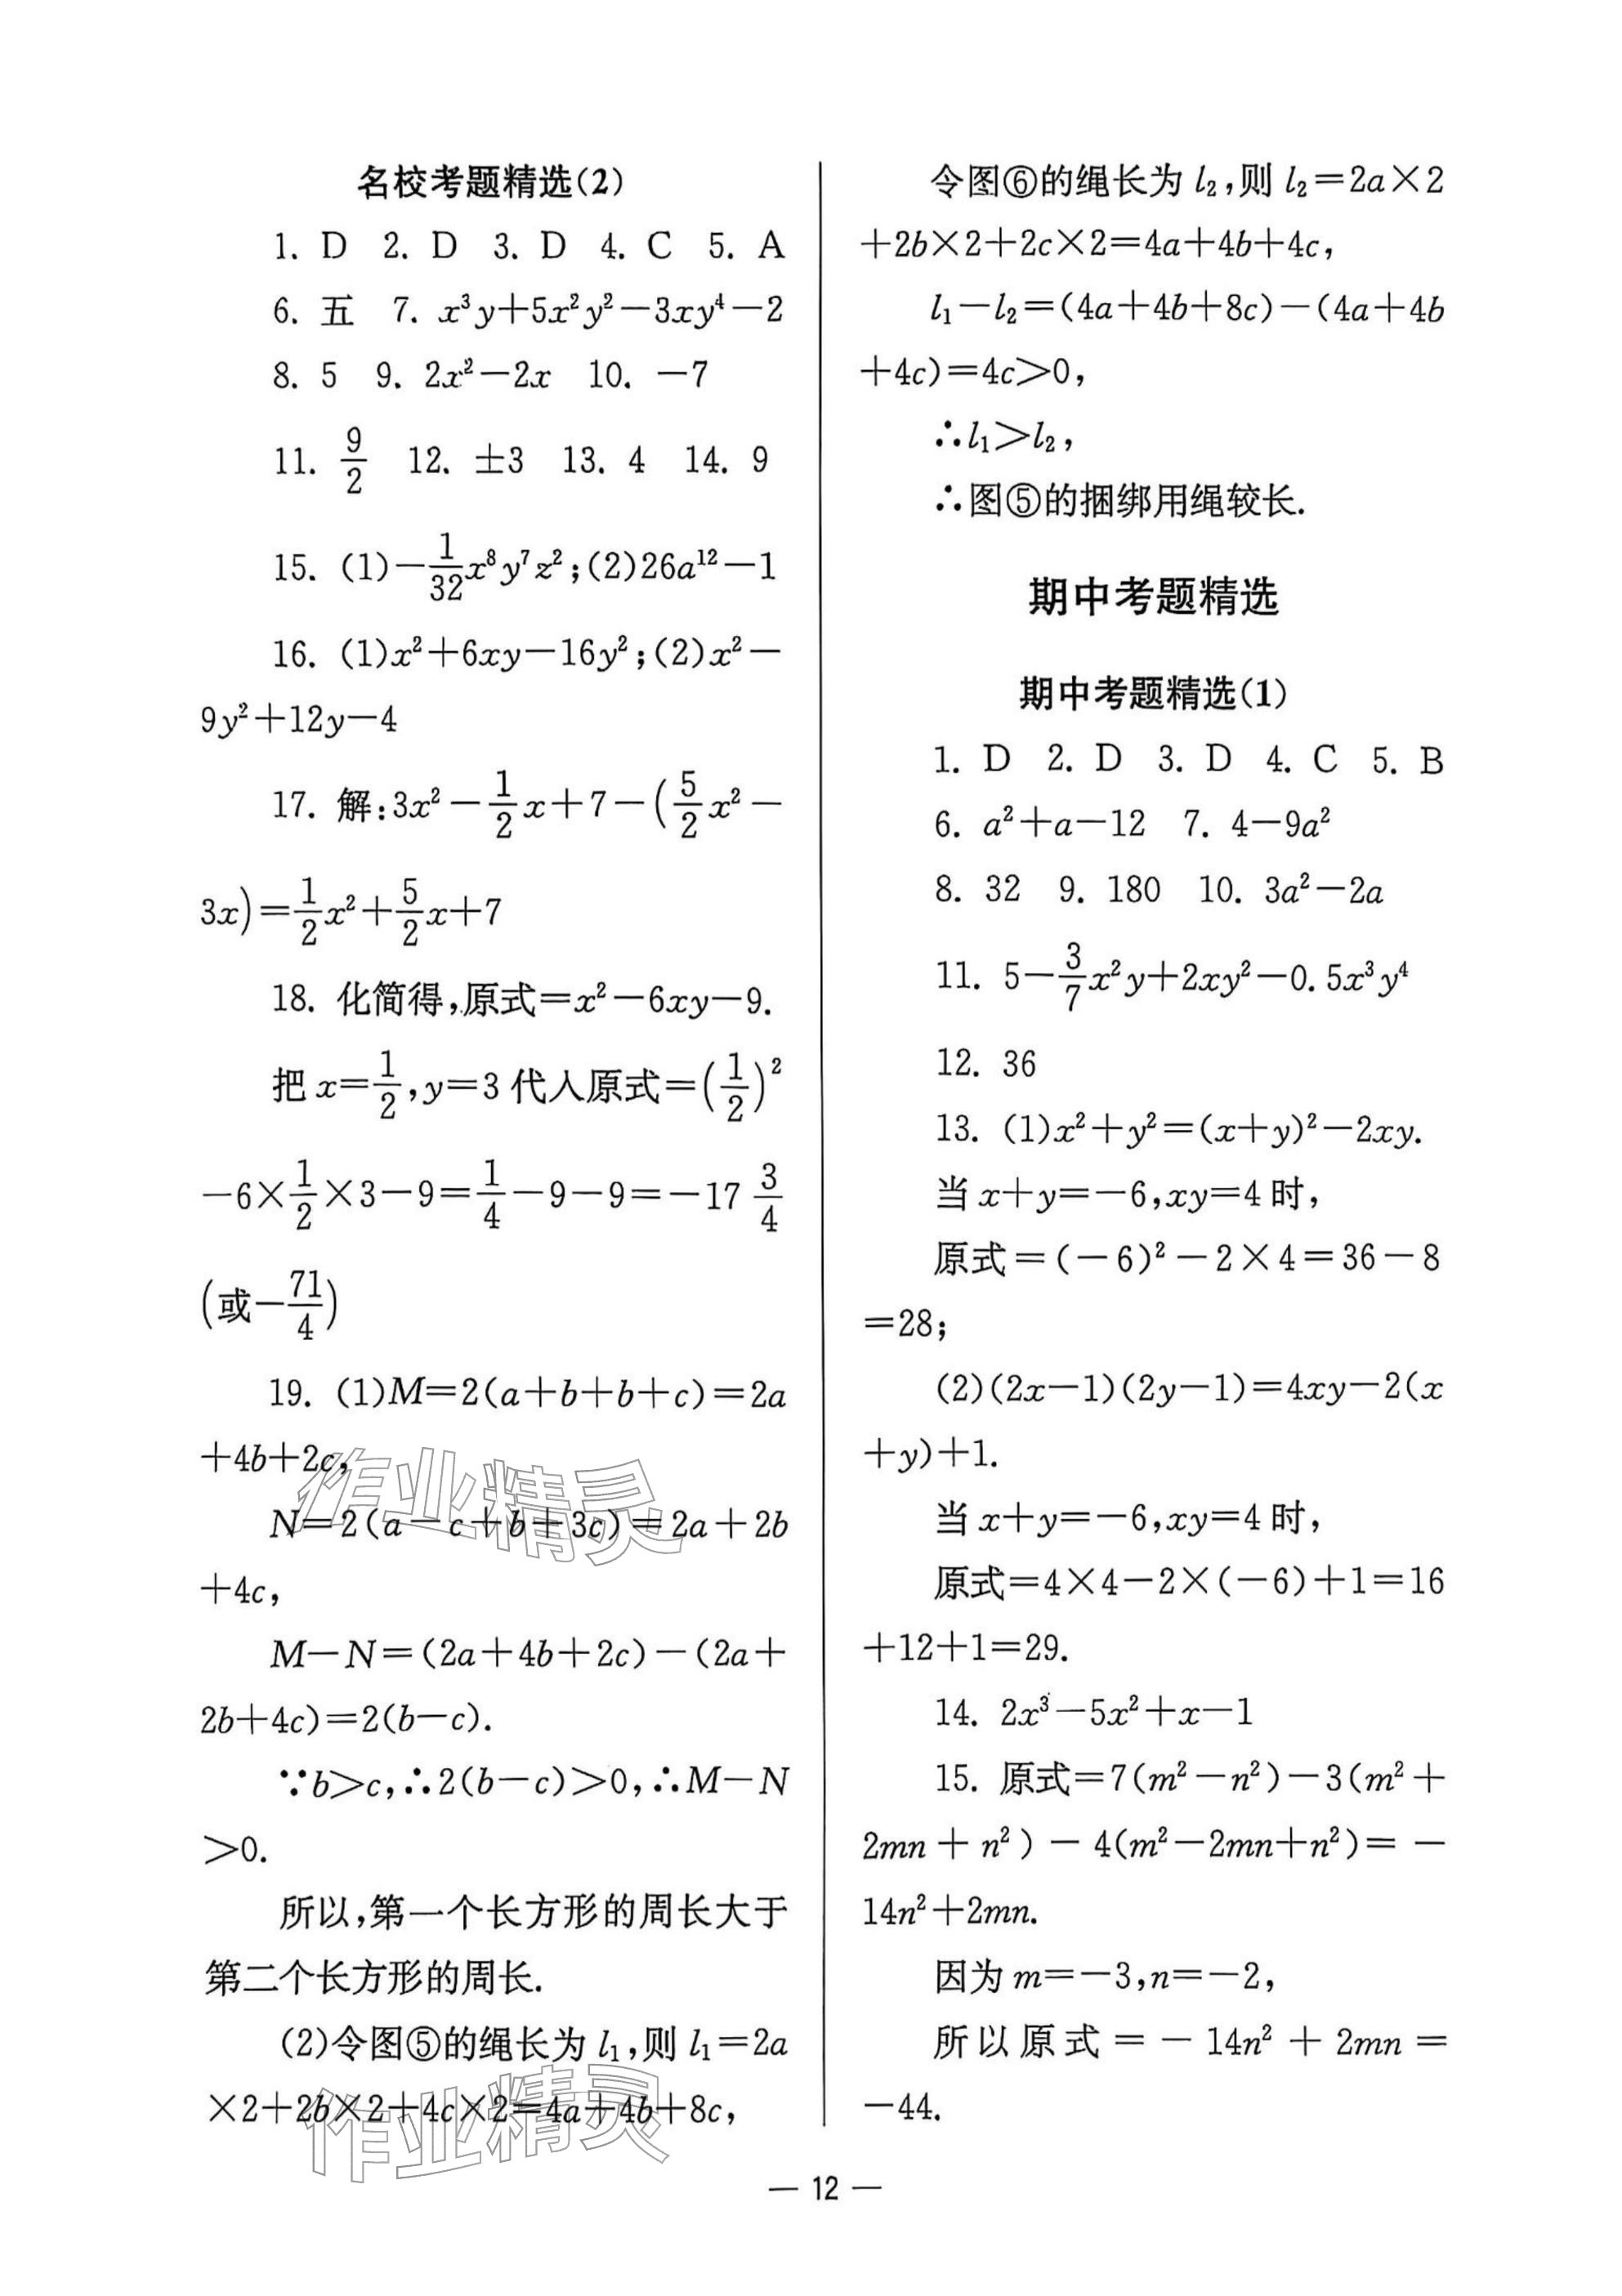 名校考题精选(2)
1. D 2. D 3. D 4. C 5. A
6. 五 7. x³y+5x²y²−3xy⁴−2
8. 5 9. 2x²−2x 10. −7
11. 9/2 12. ±3 13. 4 14. 9
15. (1)−1/32x⁸y⁷z²;(2)26a¹²−1
16. (1)x²+6xy−16y²;(2)x²−
9y²+12y−4
17. 解:3x²−1/2x+7−(5/2x²−
3x)=1/2x²+5/2x+7
18. 化简得,原式=x²−6xy−9.
把x=1/2,y=3代入原式=(1/2)²
−6×1/2×3−9=1/4−9−9=−17 3/4
(或−71/4)
19. (1)M=2(a+b+b+c)=2a
+4b+2c,
N=2(a−c+b+3c)=2a+2b
+4c,
M−N=(2a+4b+2c)−(2a+
2b+4c)=2(b−c).
∵b>c,∴2(b−c)>0,∴M−N
>0.
所以,第一个长方形的周长大于
第二个长方形的周长.
(2)令图⑤的绳长为l₁,则l₁=2a
×2+2b×2+4c×2=4a+4b+8c,
令图⑥的绳长为l₂,则l₂=2a×2
+2b×2+2c×2=4a+4b+4c,
l₁−l₂=(4a+4b+8c)−(4a+4b
+4c)=4c>0,
∴l₁>l₂,
∴图⑤的捆绑用绳较长.
期中考题精选
期中考题精选(1)
1. D 2. D 3. D 4. C 5. B
6. a²+a−12 7. 4−9a²
8. 32 9. 180 10. 3a²−2a
11. 5−3/7x²y+2xy²−0.5x³y⁴
12. 36
13. (1)x²+y²=(x+y)²−2xy.
当x+y=−6,xy=4时,
原式=(−6)²−2×4=36−8
=28;
(2)(2x−1)(2y−1)=4xy−2(x
+y)+1.
当x+y=−6,xy=4时,
原式=4×4−2×(−6)+1=16
+12+1=29.
14. 2x³−5x²+x−1
15. 原式=7(m²−n²)−3(m²+
2mn+n²)−4(m²−2mn+n²)=−
14n²+2mn.
因为m=−3,n=−2,
所以原式=−14n²+2mn=
−44.
作业精灵
作业精灵
— 12 —